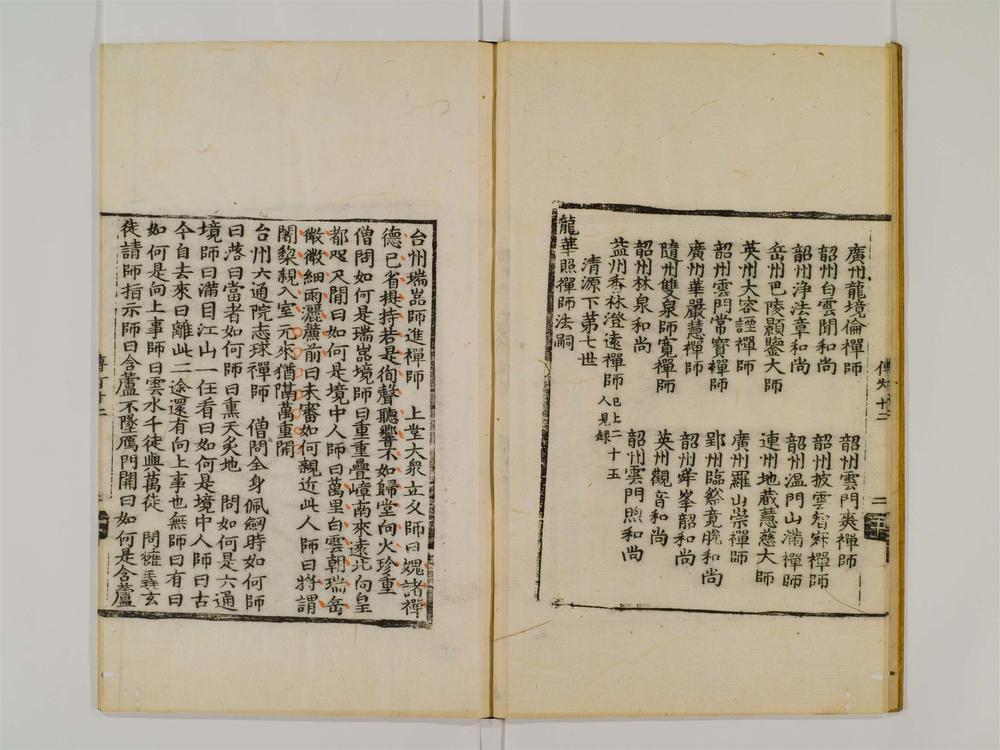 廣州龍境倫禪師　韶州雲門爽禪師
韶州白雲聞和尚　韶州披雲智寂禪師
韶州淨法章和尚　韶州溫門山滿禪師
岳州巴陵顥鑒大師　連州地蔵慧慈大師
英州大容諲禪師　廣州羅山崇禪師
韶州雲門常寳禪師　郢州臨谿竟脫和尚
廣州華嚴慧禪師　韶州舜峯韶和尚
隨州雙泉師寛禪師　英州觀音和尚
韶州林泉和尚　韶州雲門煦和尚
益州香林澄遠禪師 已上二十五人見錄
清源下苐七世
龍華照禪師法嗣
台州瑞嵓師進禪師　上堂大衆立乆師曰媿諸禪
德已省提持若是徇聲聽響不如歸堂向火珍重
僧問如何是瑞嵓境師曰重重疊嶂南來遠北向皇
都咫尺間曰如何是境中人師曰萬里白雲朝瑞岳
微微細雨灑簾前曰未審如何親近此人師曰將謂
闍黎親入室元來猶隔萬重關
台州六通院志球禪師　僧問全身佩劒時如何師
曰落曰當者如何師曰熏天炙地　問如何是六通
境師曰滿目江山一任看曰如何是境中人師曰古
今自去來曰離此二途還有向上事也無師曰有曰
如何是向上事師曰雲水千徒與萬徒　問擁毳玄
徒請師指示師曰含蘆不墜鴈門關曰如何是含蘆